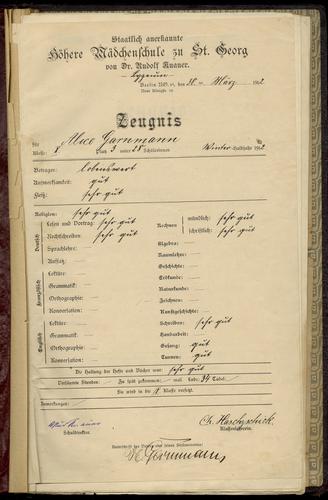 Staatlich anerkannte
Höhere Mädchenschule zu St. Georg
von Dr. Rudolf Knauer.
Lyzeum
Berlin NO. den 28. März
Neue Königstr.
Zeugnis
für Alice Garnmann
Klasse: X Platz 3 unter 28 Schülerinnen Winter-Halbjahr 191
Betragen: lobenswert
Aufmerksamkeit: gut
Fleiß: sehr gut
Religion: sehr gut
Deutsch
Lesen und Vortrag: sehr gut
Rechtschreiben: sehr gut
Sprachlehre: —
Aufsatz: —
Französisch
Lektüre: —
Grammatik: —
Orthographie: —
Konversation: —
Englisch
Lektüre: —
Grammatik: —
Orthographie: —
Konversation: —
Rechnen
mündlich: sehr gut
schriftlich: sehr gut
Algebra: —
Raumlehre: —
Geschichte: —
Erdkunde: —
Naturkunde: —
Zeichnen: —
Kunstgeschichte: —
Schreiben: sehr gut
Handarbeit: —
Gesang: gut
Turnen: gut
Die Haltung der Hefte und Bücher war: sehr gut
Versäumte Stunden: — Zu spät gekommen: — mal. Lobe: 34 Tadel: —
Sie wird in die Klasse versetzt.
Bemerkungen: —
Schuldirektor.
Klassenlehrerin.
Unterschrift des Vaters oder seines Stellvertreters: